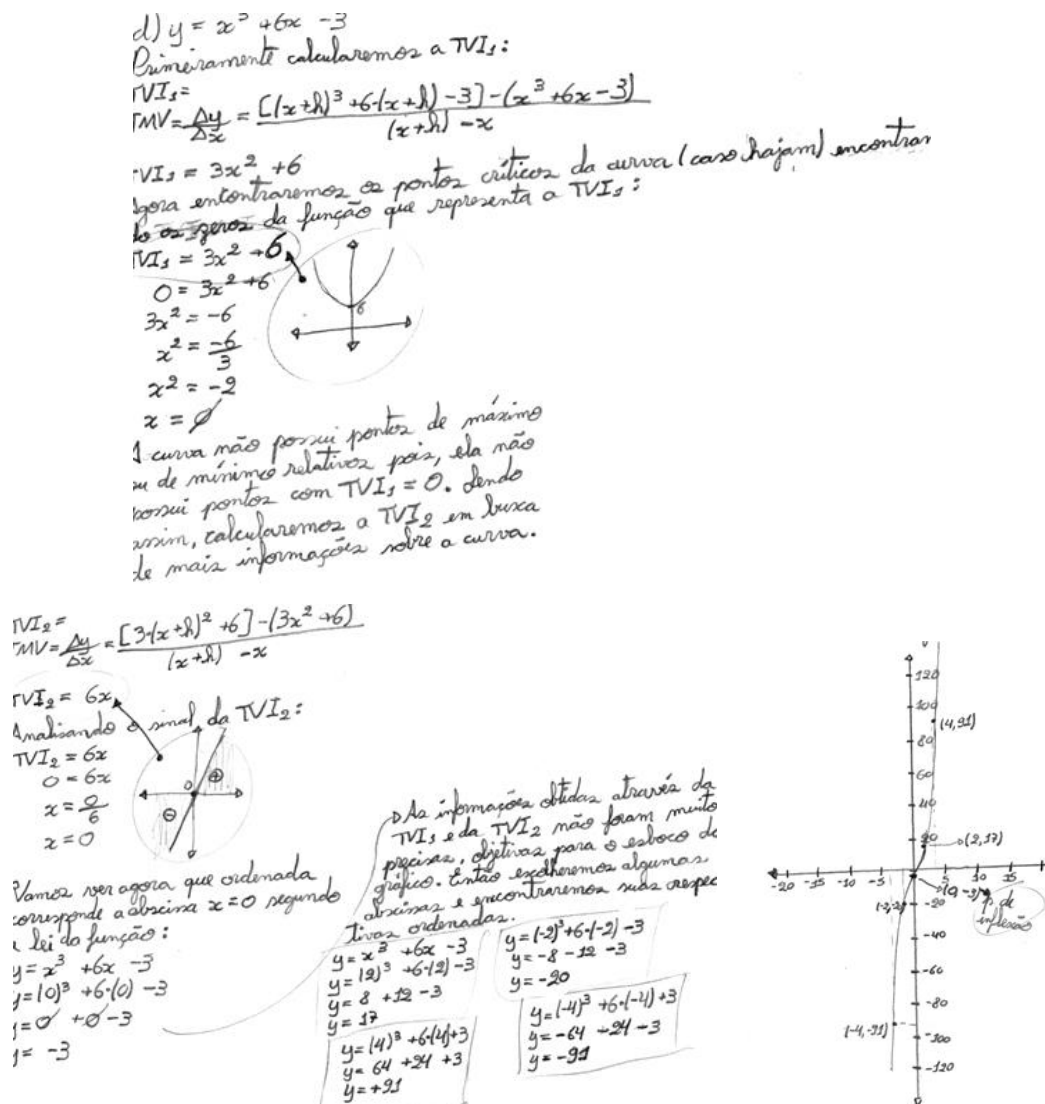 d) y = x³ + 6x - 3
Primeiramente calcularemos a TVI₁:
TVI₁ =
TMV = Δy/Δx = [(x+h)³ + 6·(x+h) - 3] - (x³ + 6x - 3) / (x+h) - x
TVI₁ = 3x² + 6
Agora entontraremos os pontos críticos da curva (caso hajam) encontran
do os zeros da função que representa a TVI₁:
TVI₁ = 3x² + 6
0 = 3x² + 6
3x² = -6
x² = -6/3
x² = -2
x = ∅
6
A curva não possui pontos de máximo
ou de mínimo relativos pois, ela não
possui pontos com TVI₁ = 0. Sendo
assim, calcularemos a TVI₂ em busca
de mais informações sobre a curva.
TVI₂ =
TMV = Δy/Δx = [3·(x+h)² + 6] - (3x² + 6) / (x+h) - x
TVI₂ = 6x
Analisando o sinal da TVI₂:
TVI₂ = 6x
0 = 6x
x = 0/6
x = 0
0 ⊕
⊖
Vamos ver agora que ordenada
corresponde a abscissa x = 0 segundo
a lei da função:
y = x³ + 6x - 3
y = (0)³ + 6·(0) - 3
y = 0 + 0 - 3
y = -3
As informações obtidas através da
TVI₁ e da TVI₂ não foram muito
precisas, objetivas para o esboco do
gráfico. Então escolheremos algumas
abscissas e encontraremos suas respec
tivas ordenadas.
y = x³ + 6x - 3
y = (2)³ + 6·(2) - 3
y = 8 + 12 - 3
y = 17
y = (4)³ + 6·(4) + 3
y = 64 + 24 + 3
y = +91
y = (-2)³ + 6·(-2) - 3
y = -8 - 12 - 3
y = -20
y = (-4)³ + 6·(-4) + 3
y = -64 - 24 - 3
y = -91
120
100
80
60
40
20
(4,91)
(2,17)
-20 -15 -10 -5 5 10 15
(0,-3)
p. de
inflexão
-20
-40
-60
-80
-100
-120
(-4,-91)